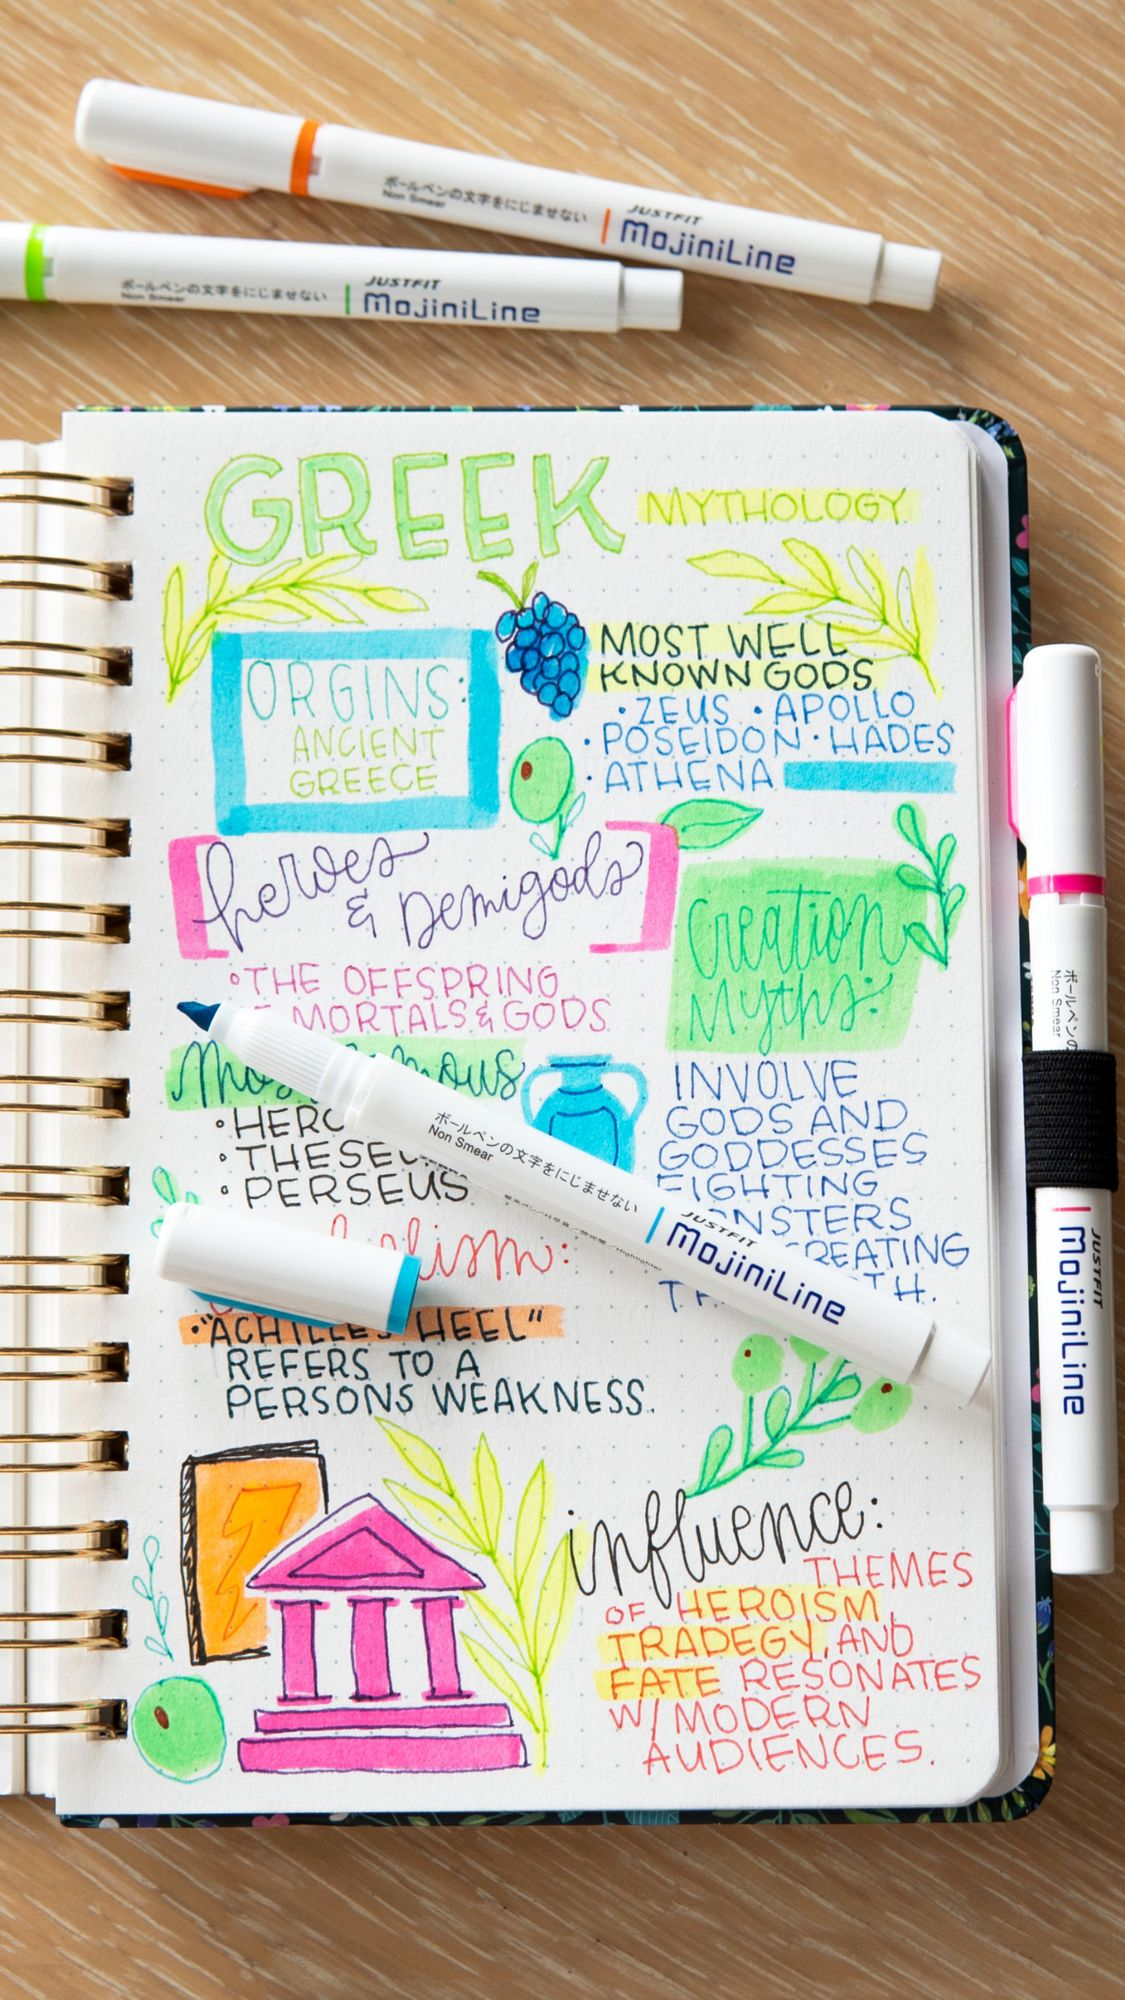 ボールペンの文字をにじませない
Non Smear
JUSTFIT
MojiniLine
ボールペンの文字をにじませない
Non Smear
JUSTFIT
MojiniLine
GREEK
MYTHOLOGY
ORGINS:
ANCIENT
GREECE
MOST WELL
KNOWN GODS
· ZEUS · APOLLO
· POSEIDON · HADES
· ATHENA
heroes
& Demigods
° THE OFFSPRING
MORTALS & GODS
Creation
Myths:
INVOLVE
GODS AND
GODDESSES
FIGHTING
° PERSEUS
·"ACHILLES HEEL"
REFERS TO A
PERSONS WEAKNESS.
influence:
THEMES
OF HEROISM,
TRADEGY, AND
FATE RESONATES
W/ MODERN
AUDIENCES.
ボールペンの文字をにじませない
Non Smear
JUSTFIT
MojiniLine
ボールペンの
Non Smear
JUSTFIT
MojiniLine